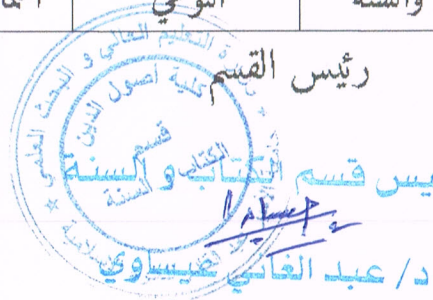 والسنة
رئيس القسم
وزارة التعليم العالي و البحث العلمي
كلية أصول الدين
قسم
الكتاب و السنة
رئيس قسم الكتاب و السنة
د/ عبد الغاني عيساوي